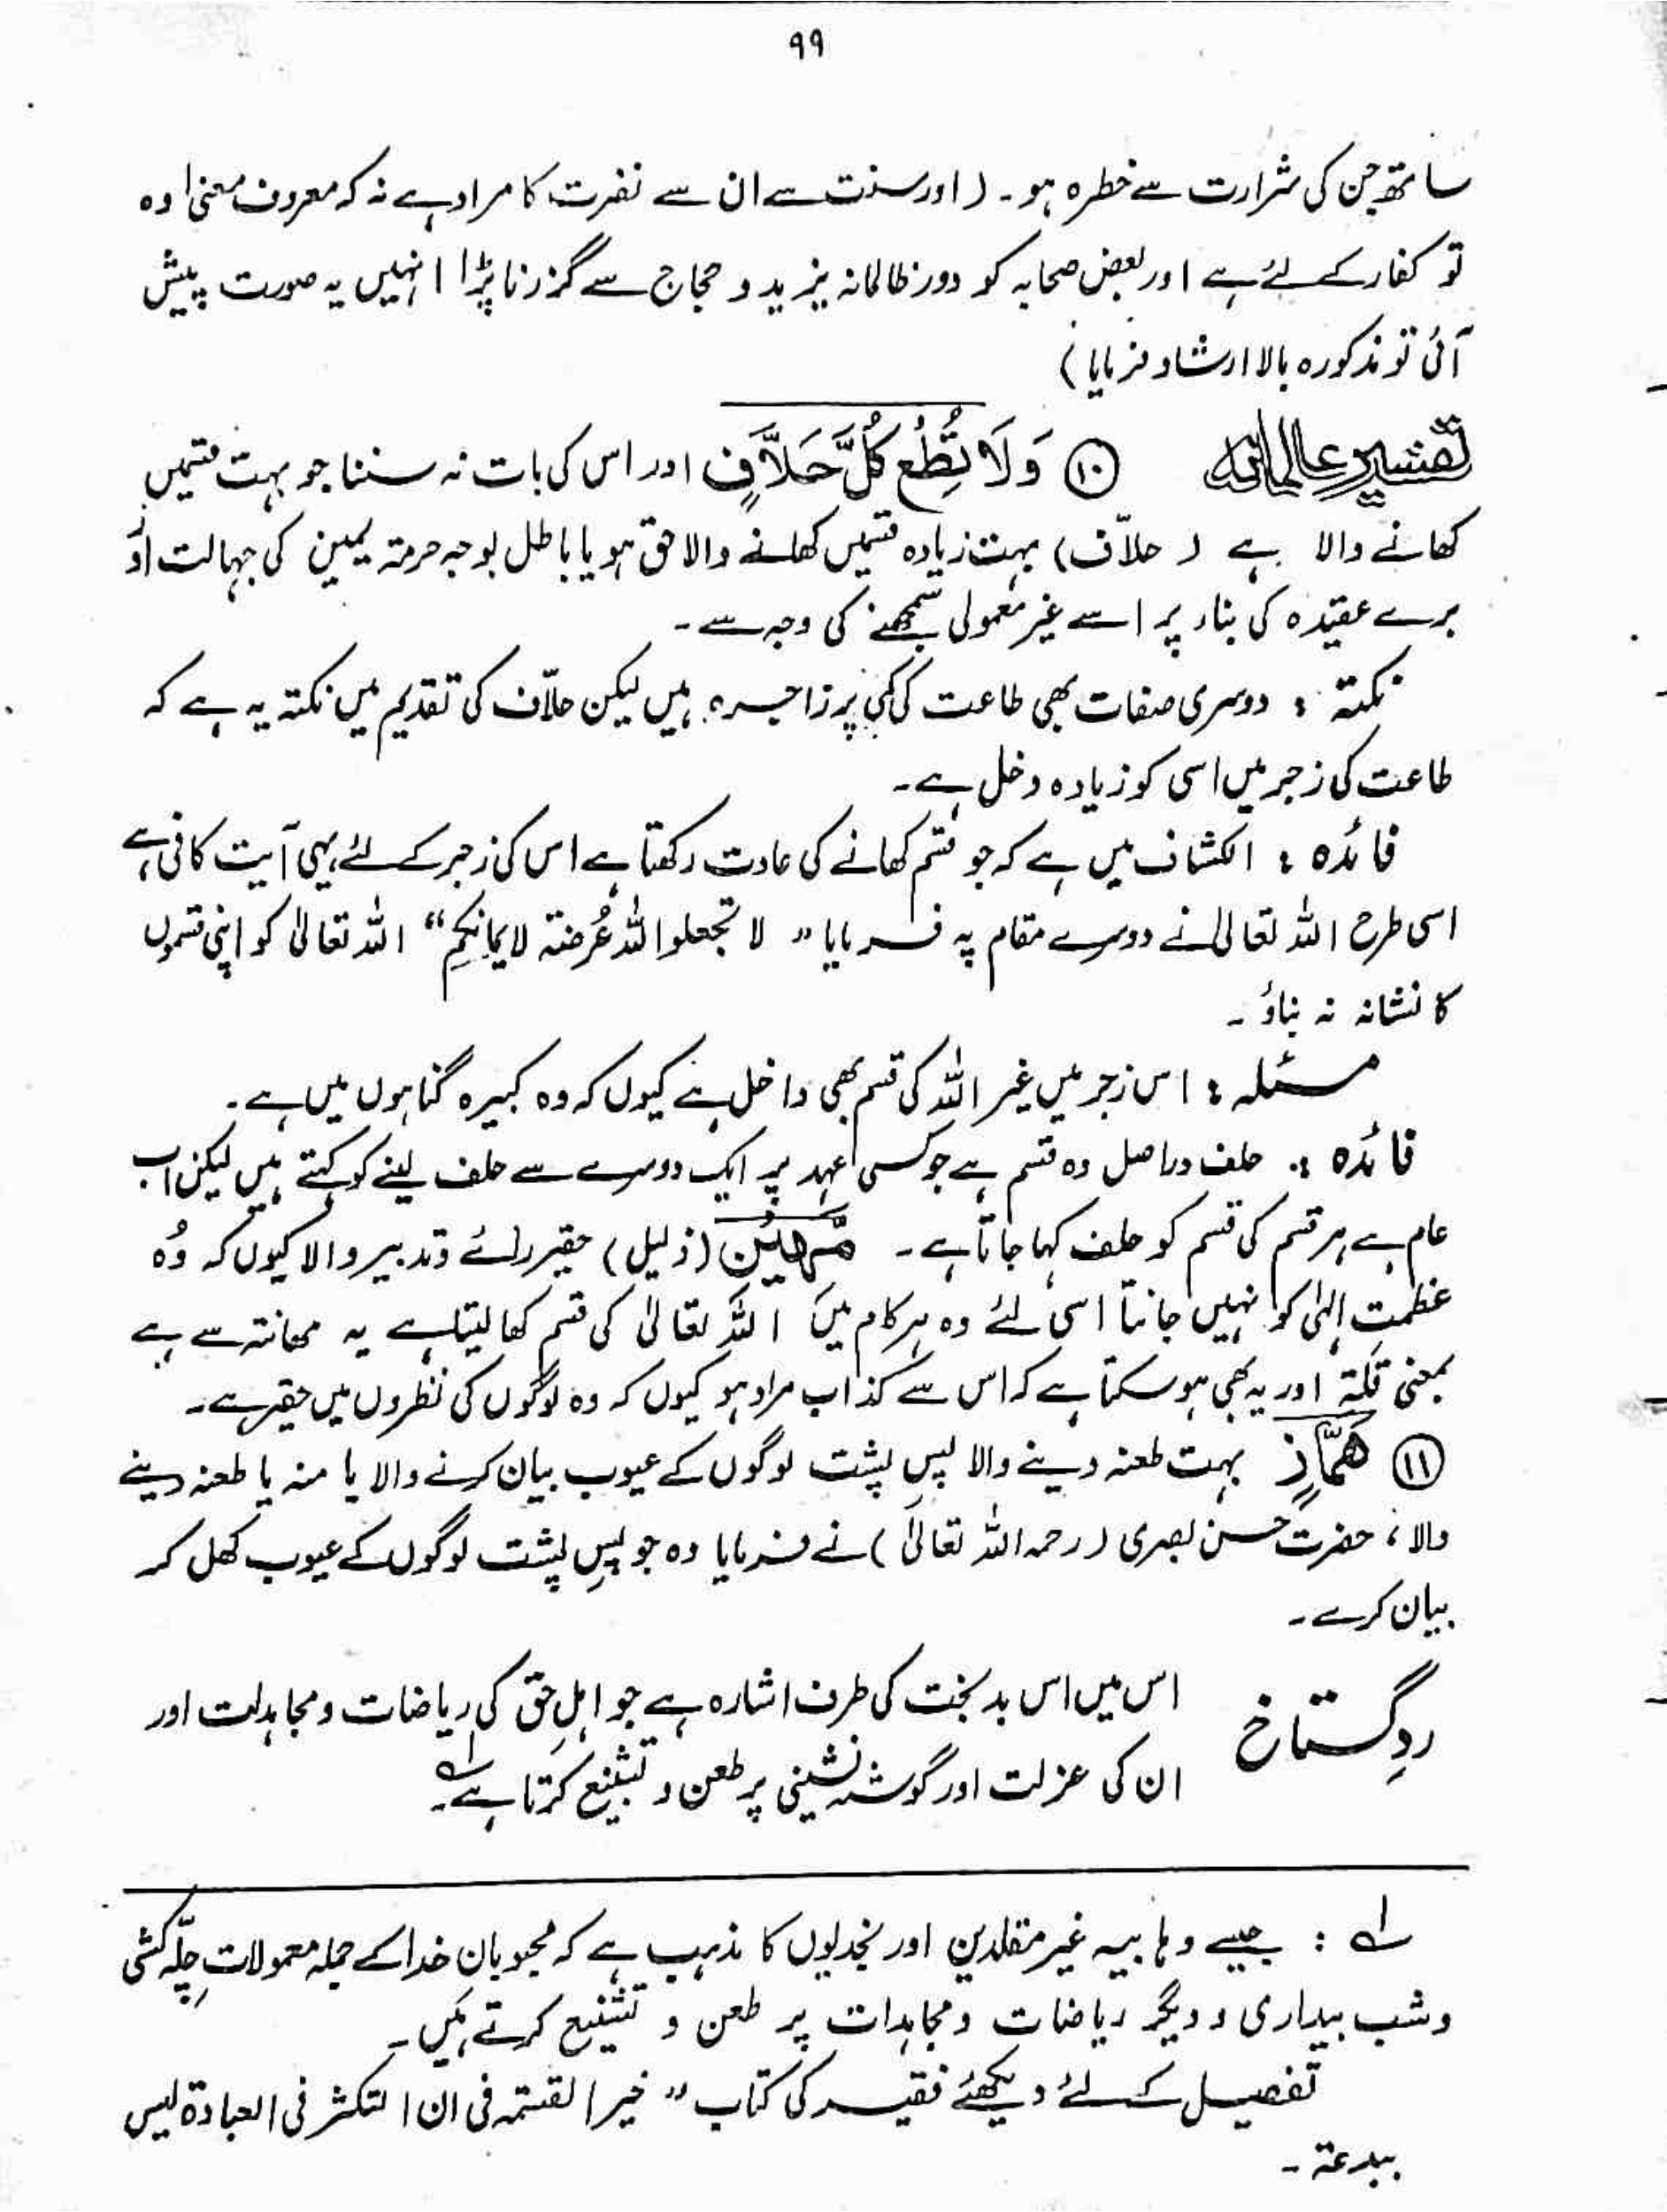 ۹۹
ساتھ جن کی شرارت سے خطرہ ہو۔ (اور سنت سے ان سے نفرت کا مراد ہے نہ کہ معروف معنیٰ وہ
تو کفار کے لئے ہے اور بعض صحابہ کو دور ظالمانہ یزید و حجاج سے گزرنا پڑا انہیں یہ صورت پیش
آئی تو مذکورہ بالا ارشاد فرمایا)
تفسیر عالمانہ ⑩ وَلَا تُطِعْ كُلَّ حَلَّافٍ اور اس کی بات نہ سننا جو بہت قسمیں
کھانے والا ہے (حلاّف) بہت زیادہ قسمیں کھانے والا حق ہو یا باطل بوجہ حرمۃ یمین کی جہالت اوُ
برے عقیدہ کی بناء پر اسے غیر معمولی سمجھنے کی وجہ سے۔
نکتہ : دوسری صفات بھی طاعت کی کمی پر زاجرہ ہیں لیکن حلاّف کی تقدیم میں نکتہ یہ ہے کہ
طاعت کی زجر میں اسی کو زیادہ دخل ہے۔
فائدہ : الکشاف میں ہے کہ جو قسم کھانے کی عادت رکھتا ہے اس کی زجر کے لئے یہی آیت کافی ہے
اسی طرح اللہ تعالیٰ نے دوسرے مقام پہ فرمایا ”لا تجعلوا اللہ عُرضۃ لایمانکم“ اللہ تعالیٰ کو اپنی قسموں
کا نشانہ نہ بناؤ۔
مسئلہ : اس زجر میں غیر اللہ کی قسم بھی داخل ہے کیوں کہ وہ کبیرہ گناہوں میں ہے۔
فائدہ : حلف دراصل وہ قسم ہے جو کسی عہد پر ایک دوسرے سے حلف لینے کو کہتے ہیں لیکن اب
عام ہے ہر قسم کی قسم کو حلف کہا جاتا ہے۔ مَّهِیْنٍ (ذلیل) حقیر رائے و تدبیر والا کیوں کہ وُہ
عظمتِ الٰہی کو نہیں جانتا اسی لئے وہ ہر کام میں اللہ تعالیٰ کی قسم کھا لیتا ہے یہ مھانتہ سے ہے
بمعنی قلّۃ اور یہ بھی ہو سکتا ہے کہ اس سے کذاب مراد ہو کیوں کہ وہ لوگوں کی نظروں میں حقیر ہے۔
⑪ هَمَّازٍ بہت طعنہ دینے والا پسِ پشت لوگوں کے عیوب بیان کرنے والا یا منہ یا طعنہ دینے
والا، حضرت حسن بصری (رحمہ اللہ تعالیٰ) نے فرمایا وہ جو پسِ پشت لوگوں کے عیوب کھل کر
بیان کرے۔
ردِ گستاخ اس میں اس بدبخت کی طرف اشارہ ہے جو اہلِ حق کی ریاضات و مجاہدات اور
ان کی عزلت اور گوشہ نشینی پر طعن و تشنیع کرتا ہے۔ لہ
لہ : جیسے وہابیہ غیر مقلدین اور نجدیوں کا مذہب ہے کہ محبوبان خدا کے جملہ معمولاتِ چلّہ کشی
و شب بیداری و دیگر ریاضات و مجاہدات پر طعن و تشنیع کرتے ہیں۔
تفصیل کے لئے دیکھئے فقیر کی کتاب ”خیر القسمہ فی ان التکثر فی العبادۃ لیس
ببدعۃ۔